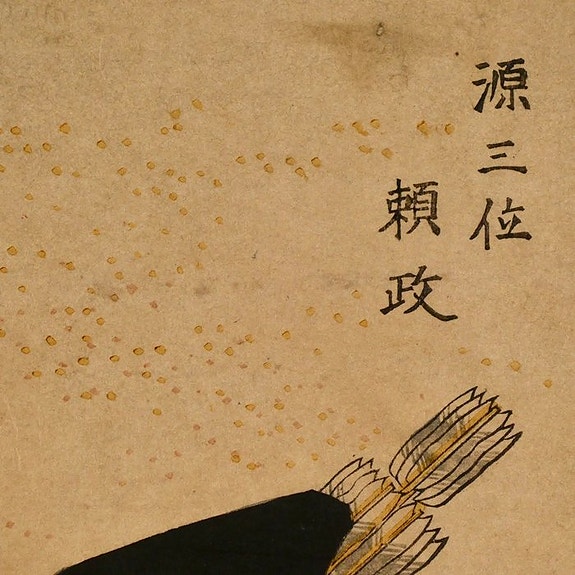 源三位
頼政